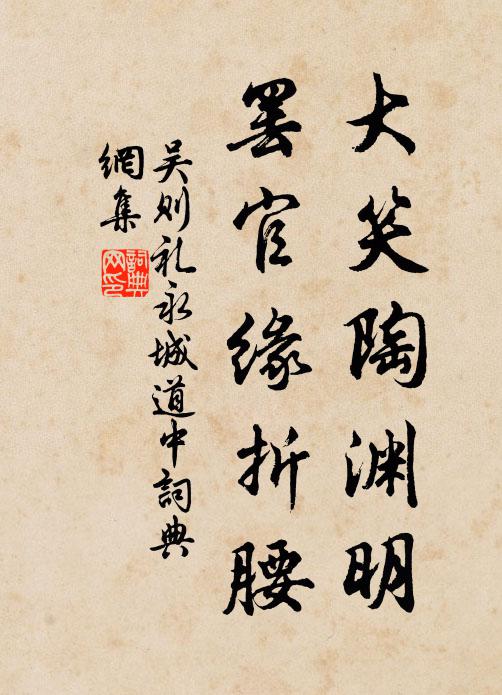 大笑陶渊明
罢官缘折腰
吴则礼永城道中詞典
網集
詞典
网印